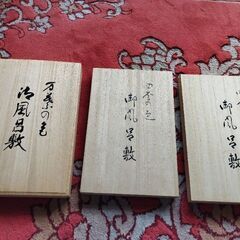 万葉の色
御風呂敷
四季の色
御風呂敷
御風呂敷